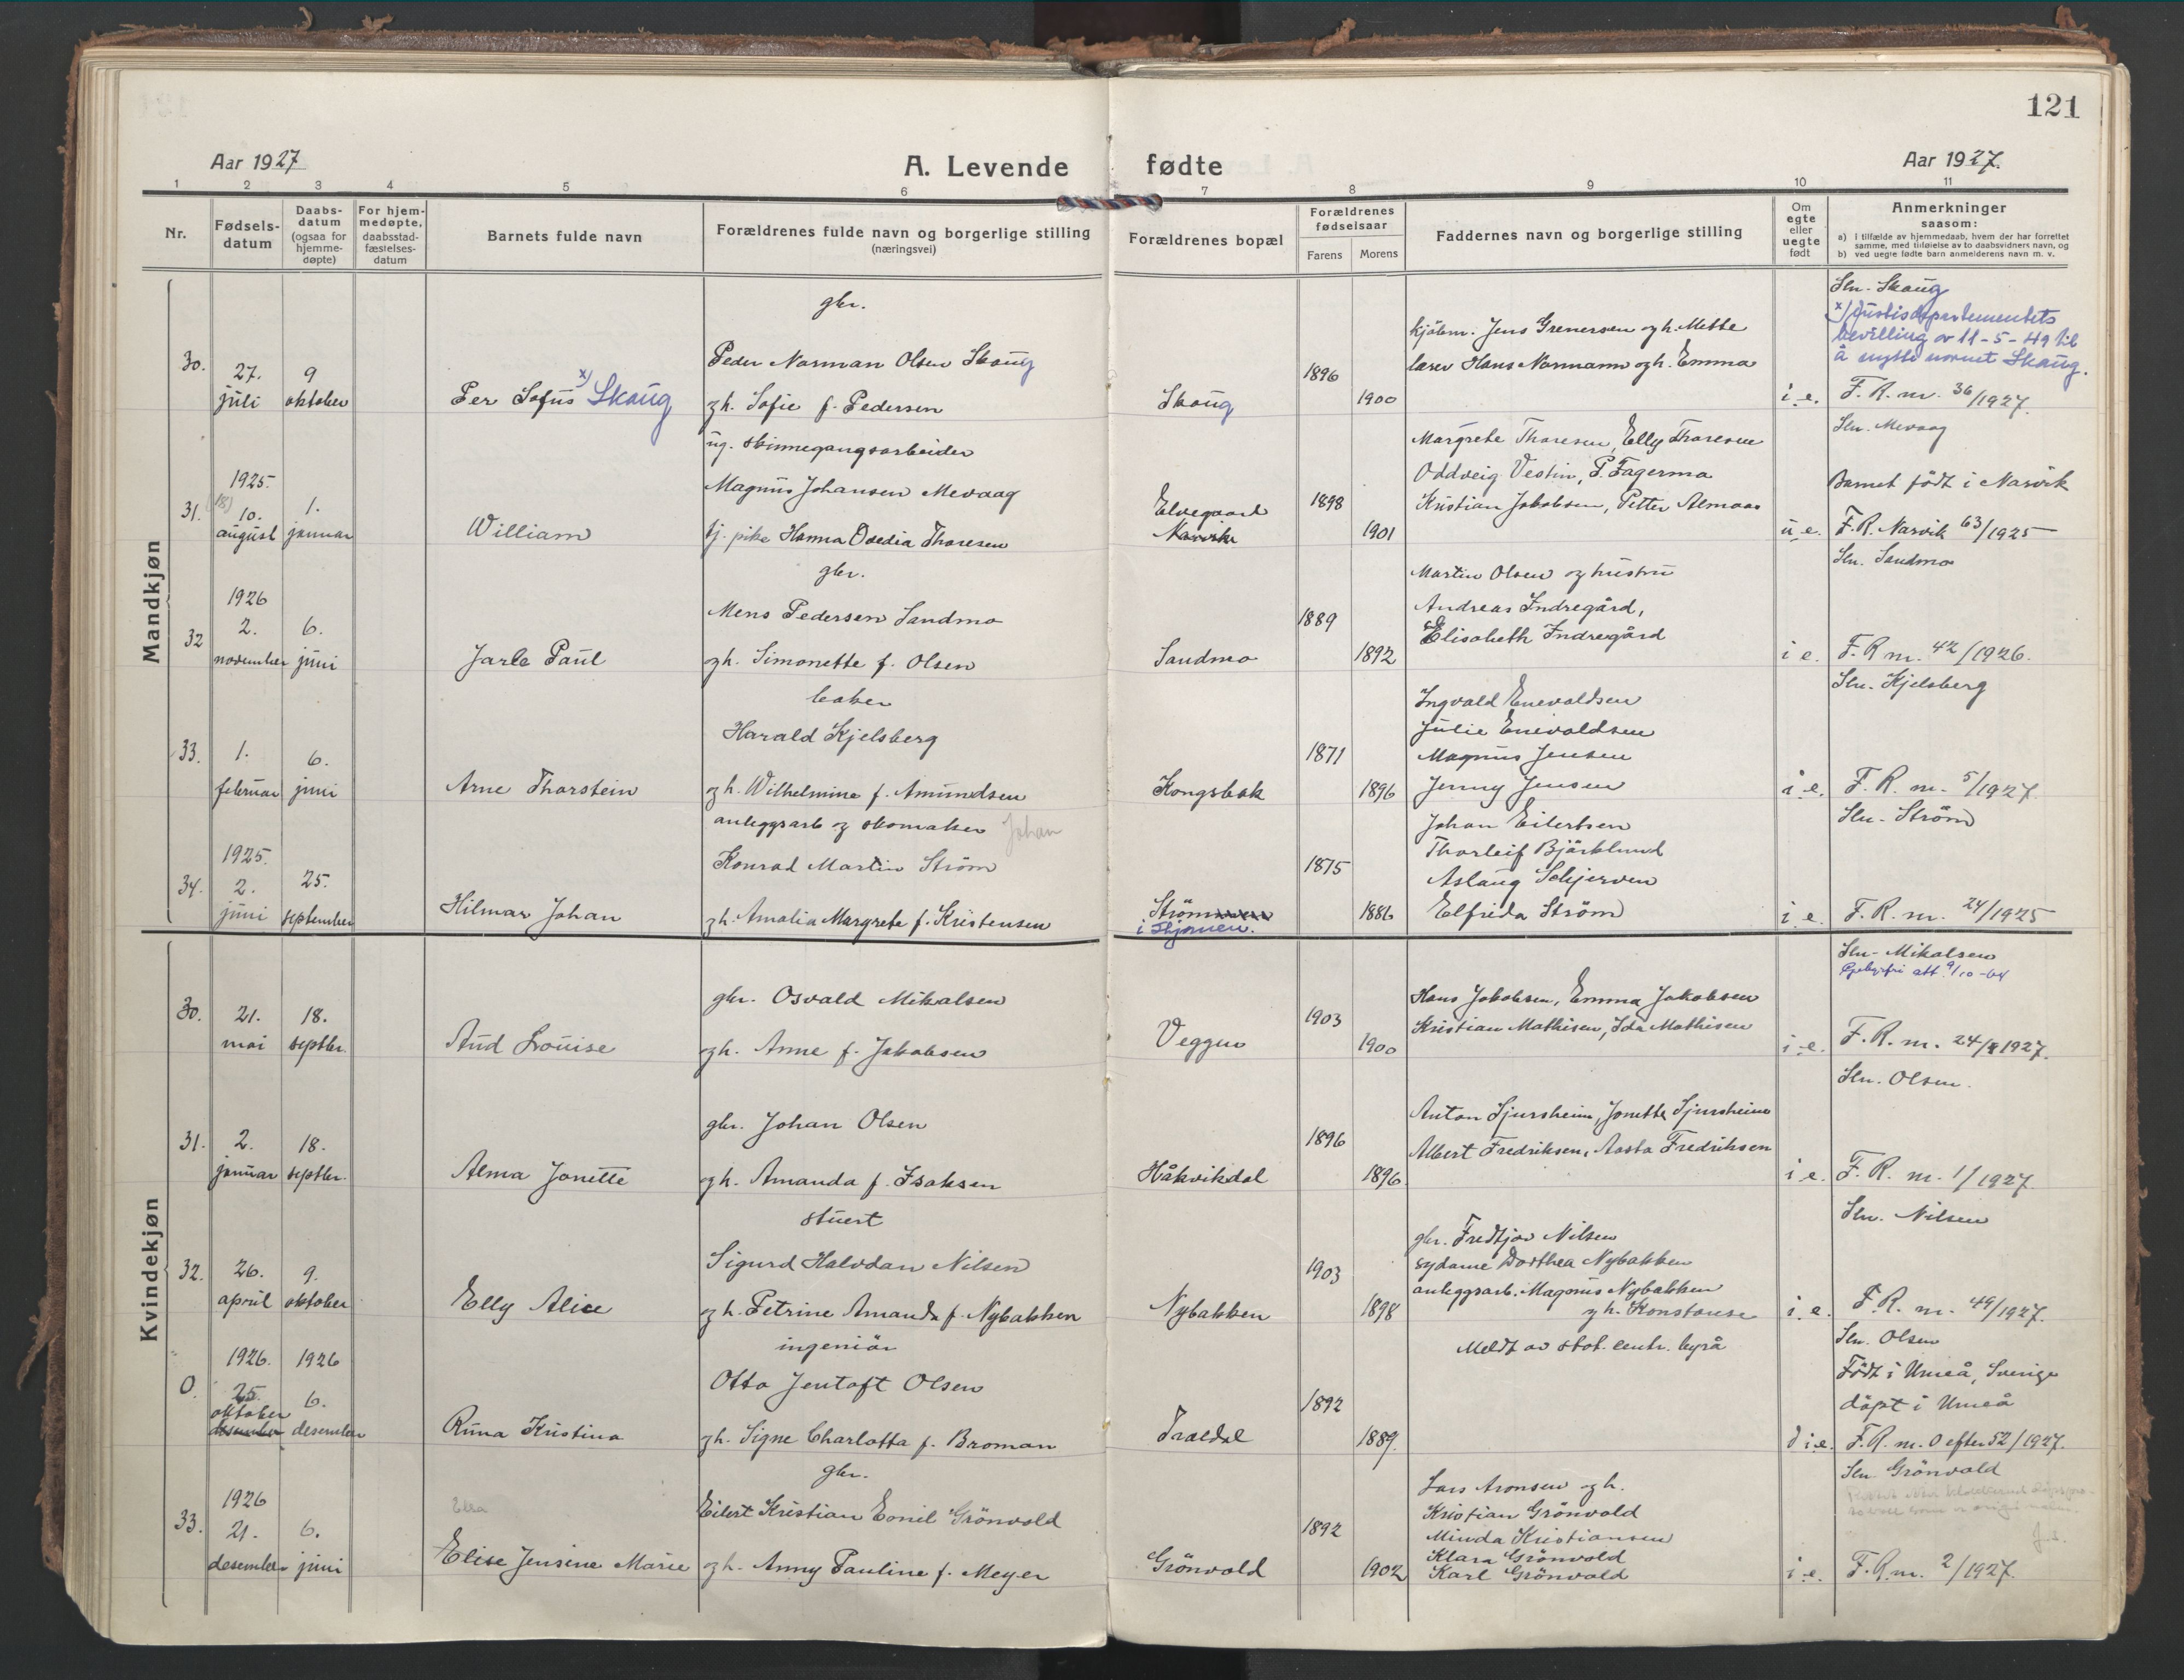 121
Aar 1927
A. Levende fødte
Aar 1927.
1 2 3 4 5 6 7 8 9 10 11
Nr.
Fødsels-
datum
Daabs-
datum
(ogsaa for
hjemme-
døpte)
For hjem-
medøpte,
daabsstad-
fæstelses-
datum
Barnets fulde navn
Forældrenes fulde navn og borgerlige stilling
(næringsvei)
Forældrenes bopæl
Forældrenes
fødselsaar
Farens Morens
Faddernes navn og borgerlige stilling
Om
egte
eller
uegte
født
Anmerkninger
saasom:
a) i tilfælde av hjemmedaab, hvem der har forrettet
samme, med tilføielse av to daabsvidners navn, og
b) ved uegte fødte barn anmelderens navn m. v.
Mandkjøn
30.
27.
juli
9
oktober
Per Sofus x) Skaug
gbr.
Peder Norman Olsen Skaug
og h. Sofie f. Pedersen
Skaug
1896
1900
kjøbm. Jens Grenersen og h. Mette
lærer Hans Normann og h. Emma
i. e.
Sln. Skaug
x) Justisdepartementets
bevilling av 11-5-49 til
å nytte navnet Skaug.
F. R. nr. 36/1927.
31.
1925.
(18)
10.
august
1.
januar
William
ug. skinnegangsarbeider
Magnus Johansen Mevaag
tj. pike Hanna Ovedia Thoresen
Elvegaard
Narvik
1898
1901
Margrete Thoresen, Elly Thoresen
Oddveig Vestin, P. Fagermo
Kristian Jakobsen, Petter Almaas
u. e.
Sln. Mevaag
Barnet födt i Narvik
F. R. Narvik 63/1925
32
1926
2.
november
6.
juni
Jarle Paul
gbr.
Mens Pedersen Sandmo
og h. Simonette f. Olsen
Sandmo
1889
1892
Martin Olsen og hustru
Andreas Indregård,
Elisabeth Indregård
i e.
Sln. Sandmo
F. R nr. 42/1926.
33.
1.
februar
6.
juni
Arne Thorstein
baker
Harald Kjelsberg
og h. Wilhelmine f. Amundsen
Kongsbak
1871
1896
Ingvald Enevoldsen
Julie Enevoldsen
Magnus Jensen
Jenny Jensen
i. e.
Sln. Kjelsberg
F. R. nr. 5/1927.
34.
1925.
2.
juni
25.
september
Hilmar Johan
anleggsarb og skomaker Johan
Konrad Martin Ström
og h. Amalia Margrete f. Kristensen
Strömmen
i Skjomen.
1875
1886
Johan Eilertsen
Thorleif Bjärklund
Aslaug Schjerven
Elfrida Ström
i e.
Sln. Ström
F. R. nr. 24/1925
Kvindekjøn
30.
21.
mai
18.
septbr.
Aud Louise
gbr. Osvald Mikalsen
og h. Anne f. Jakobsen
Veggen
1903
1900
Hans Jakobsen, Emma Jakobsen
Kristian Mathisen, Ida Mathisen
i. e.
Sln. Mikalsen
Gebyrfri att. 9/10-64
F. R. nr. 24/1927.
31.
2.
januar
18.
septbr.
Alma Jonette
gbr. Johan Olsen
og h. Amanda f. Isaksen
Håkvikdal
1896
1896
Anton Sjursheim, Jonette Sjursheim
Albert Fredriksen, Aasta Fredriksen
i e.
Sln. Olsen.
F. R. nr. 1/1927.
32.
26.
april
9.
oktober
Elly Alice
stuert
Sigurd Halvdan Nilsen
og h. Petrine Amanda f. Nybakken
Nybakken
1903
1898
gbr. Fredtjov Nilsen
sydame Dorthea Nybakken
anleggsarb. Magnus Nybakken
og h. Konstanse
i. e.
Sln. Nilsen
F. R. nr. 49/1927.
0.
1926.
25.
oktober
desember
1926
6.
desember
Runa Kristina
ingeniör
Otto Jentoft Olsen
og h. Signe Charlotta f. Broman
Traldal
1892
1889.
Meldt av stat. centr. byrå
i e.
Sln. Olsen
Födt i Umeå, Sverige
döpt i Umeå
F. R. nr. 0 efter 52/1927.
33.
1926
21.
desember
6.
juni
Elsa
Elise Jensine Marie
gbr.
Eilert Kristian Emil Grönvold
og h. Anny Pauline f. Meyer
Grönvold
1892
1902
Lars Aronsen og h.
Kristian Grönvold
Minda Kristiansen
Klara Grönvold
Karl Grönvold
i e.
Sln. Grönvold
F. R. nr. 2/1927.